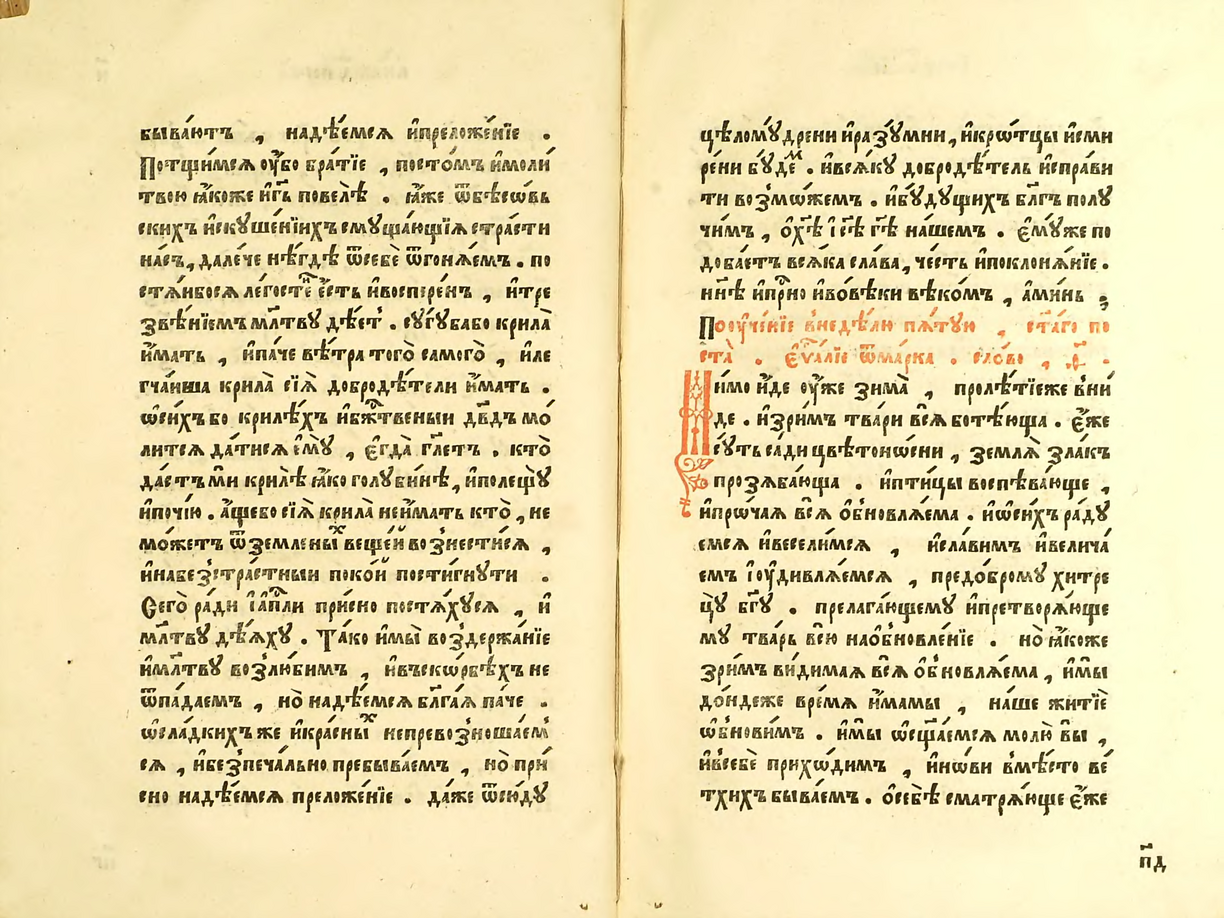 бываютъ , надѣ́емсѧ и҆преложе́нїе .
Потщи́мсѧ ᲂу҆́бо бра́тїе , посто́мъ и҆моли́
твою ꙗ҆́коже и҆гь҃ повелѣ̀ . ꙗ҆̀же ѿбѣсѡ́вь
скихъ и҆скꙋше́нїихъ смꙋща́ющїѧ стра́сти
на́съ , дале́че нѣ́гдѣ ѿсебѐ ѿгонѧ́емъ . по
стѧ́ибосѧ легостїе́ є҆́сть и҆воспере́нъ , и҆тре
звѣ́нїемъ мл҃твꙋ дѣ́ет . сꙋгꙋбабо крила̀
и҆́мать , и҆па́че вѣ́тра того̀ самого̀ , и҆ле
гча́иша крила̀ сїѧ̀ добродѣ́тели и҆́мать .
ѡ҆си́хъ бо крилѣ́хъ и҆бж҃твеныи дв҃дъ мо́
литсѧ да́тисѧ є҆мꙋ̀ , є҆гда̀ гл҃етъ . кто̀
да́стъ мѝ крилѣ̀ ꙗ҆́ко голꙋби́нѣ , и҆полещꙋ̀
и҆почі́ю . а҆́щебо сїѧ̀ крила̀ неи҆́мать кто̀ , не
мо́жетъ ѿземлены́х веще́й возне́стисѧ ,
и҆набезстра́стныи поко́й пости́гнꙋти .
Сего̀ ра́ди і҆ а҆пⷭ҇ли при́сно постѧ́хꙋсѧ , и҆
мл҃твꙋ дѣ́ѧхꙋ . Та́ко и҆мы̀ воздержа́нїе
и҆мл҃твꙋ возлю́бимъ , и҆въскѡ́рбѣхъ не
ѿпа́даемъ , но̀ надѣ́емсѧ бл҃га́ѧ па́че .
ѡ҆сла́дкихъ же и҆кра́сныⷯ непревозноша́ем
сѧ , и҆безпеча́льно пребыва́емъ , но̀ при́
сно надѣ́емсѧ преложе́нїе . да́же ѿсю́дꙋ
цѣломꙋ́дрени и҆разꙋмни , и҆кро́тцы и҆сми
ре́ни бꙋ́деⷨ . и҆всѧ́кꙋ добродѣ́тель и҆спра́ви
ти возмо́жемъ . и҆бꙋ́дꙋщихъ бл҃гъ полꙋ
чи́мъ , ѻ҆хⷭ҇ѣ і҆с҃ѣ гдⷭ҇ѣ на́шемъ . є҆мꙋ́же по
доба́етъ всѧ́ка сла́ва , че́сть и҆поклонѧ́нїе .
нн҃ѣ и҆прⷭ҇но и҆вовѣ́ки вѣко́мъ , а҆ми́нь ;
Поᲂуче́нїе внедѣ́лю пѧ́тꙋю , ст҃а́го по
ста̀ . є҆ѵⷢ҇лїе ѿмарка . сло́во ,
Мимо и҆́де ᲂу҆́же зима̀ , проле́тїеже вни́
де . и҆зри́мъ тва́ри всѧ̀ботѣ́юща . є҆́же
сꙋ́ть сади цвѣ́тоно́сни , землѧ̀ зла́къ
прозѧба́юща . и҆пти́цы воспѣва́юще ,
и҆про́чаѧ всѧ̀ ѻ҆бновлѧ́ема . и҆ѡ҆си́хъ ра́дꙋ
емсѧ и҆весели́мсѧ , и҆сла́вимъ и҆велича́
емъ і҆ᲂу҆дивлѧ́емсѧ , предо́бромꙋ хи́тре
цꙋ̀ бг҃ꙋ . прелага́ющемꙋ и҆претворѧ́юще
мꙋ̀ тва́рь всю̀ наѻ҆бновле́нїе . но̀ ꙗ҆́коже
зри́мъ ви́димаѧ всѧ̀ ѻ҆бновлѧ́ема , и҆мы̀
до́ндеже вре́мѧ и҆́мамы , на́ше житїѐ
ѡ҆бнови́мъ . и҆мы̀ ѡ҆сща́емсѧ молю̀ вы̀ ,
и҆всебѐ прихо́димъ , и҆но́ви вмѣ́сто ве́
тхихъ быва́емъ . ѻ҆себѣ̀ сматрѧ́юще є҆́же
п҃д